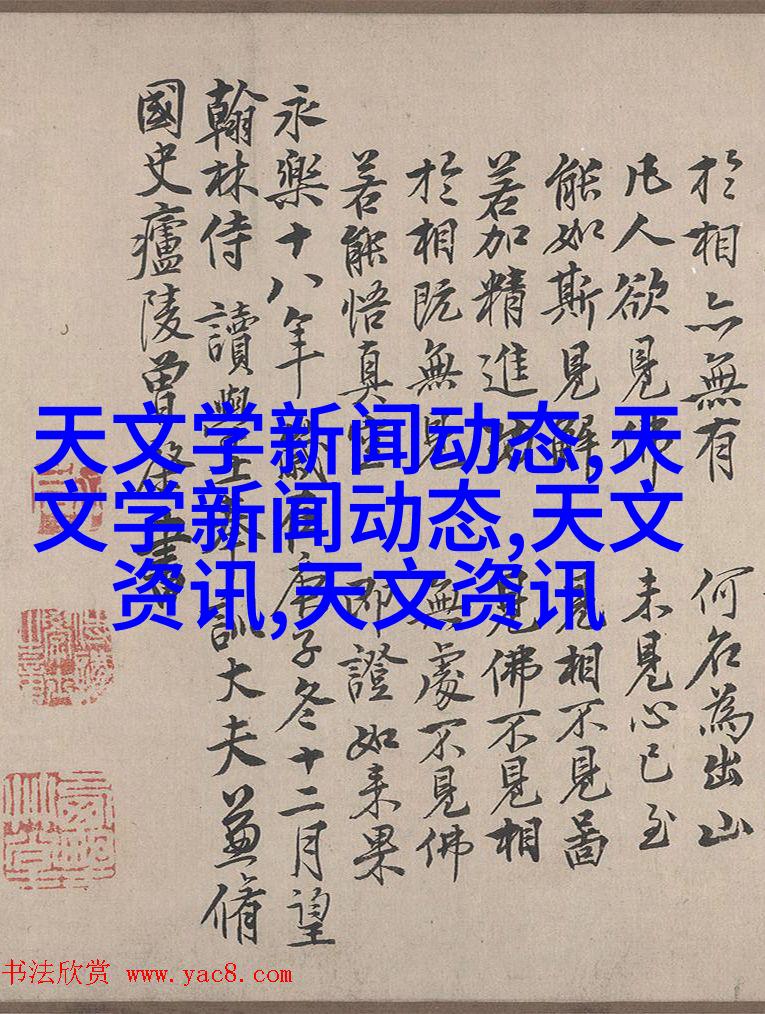 於相亦無有 何名為出山
凡人欲見佛 未見心已至
能如斯見解 見相不見啚
若加精進 見佛不見相
於相既無見 無處不見佛
若能悟真空 即證如来果
永樂十八年歲在庚子冬十二月望
翰林侍讀學士奉訓大夫兼脩
國史廬陵曾書
天文学新闻动态,天
文学新闻动态,天文
资讯,天文资讯
书法欣赏 www.yac8.com